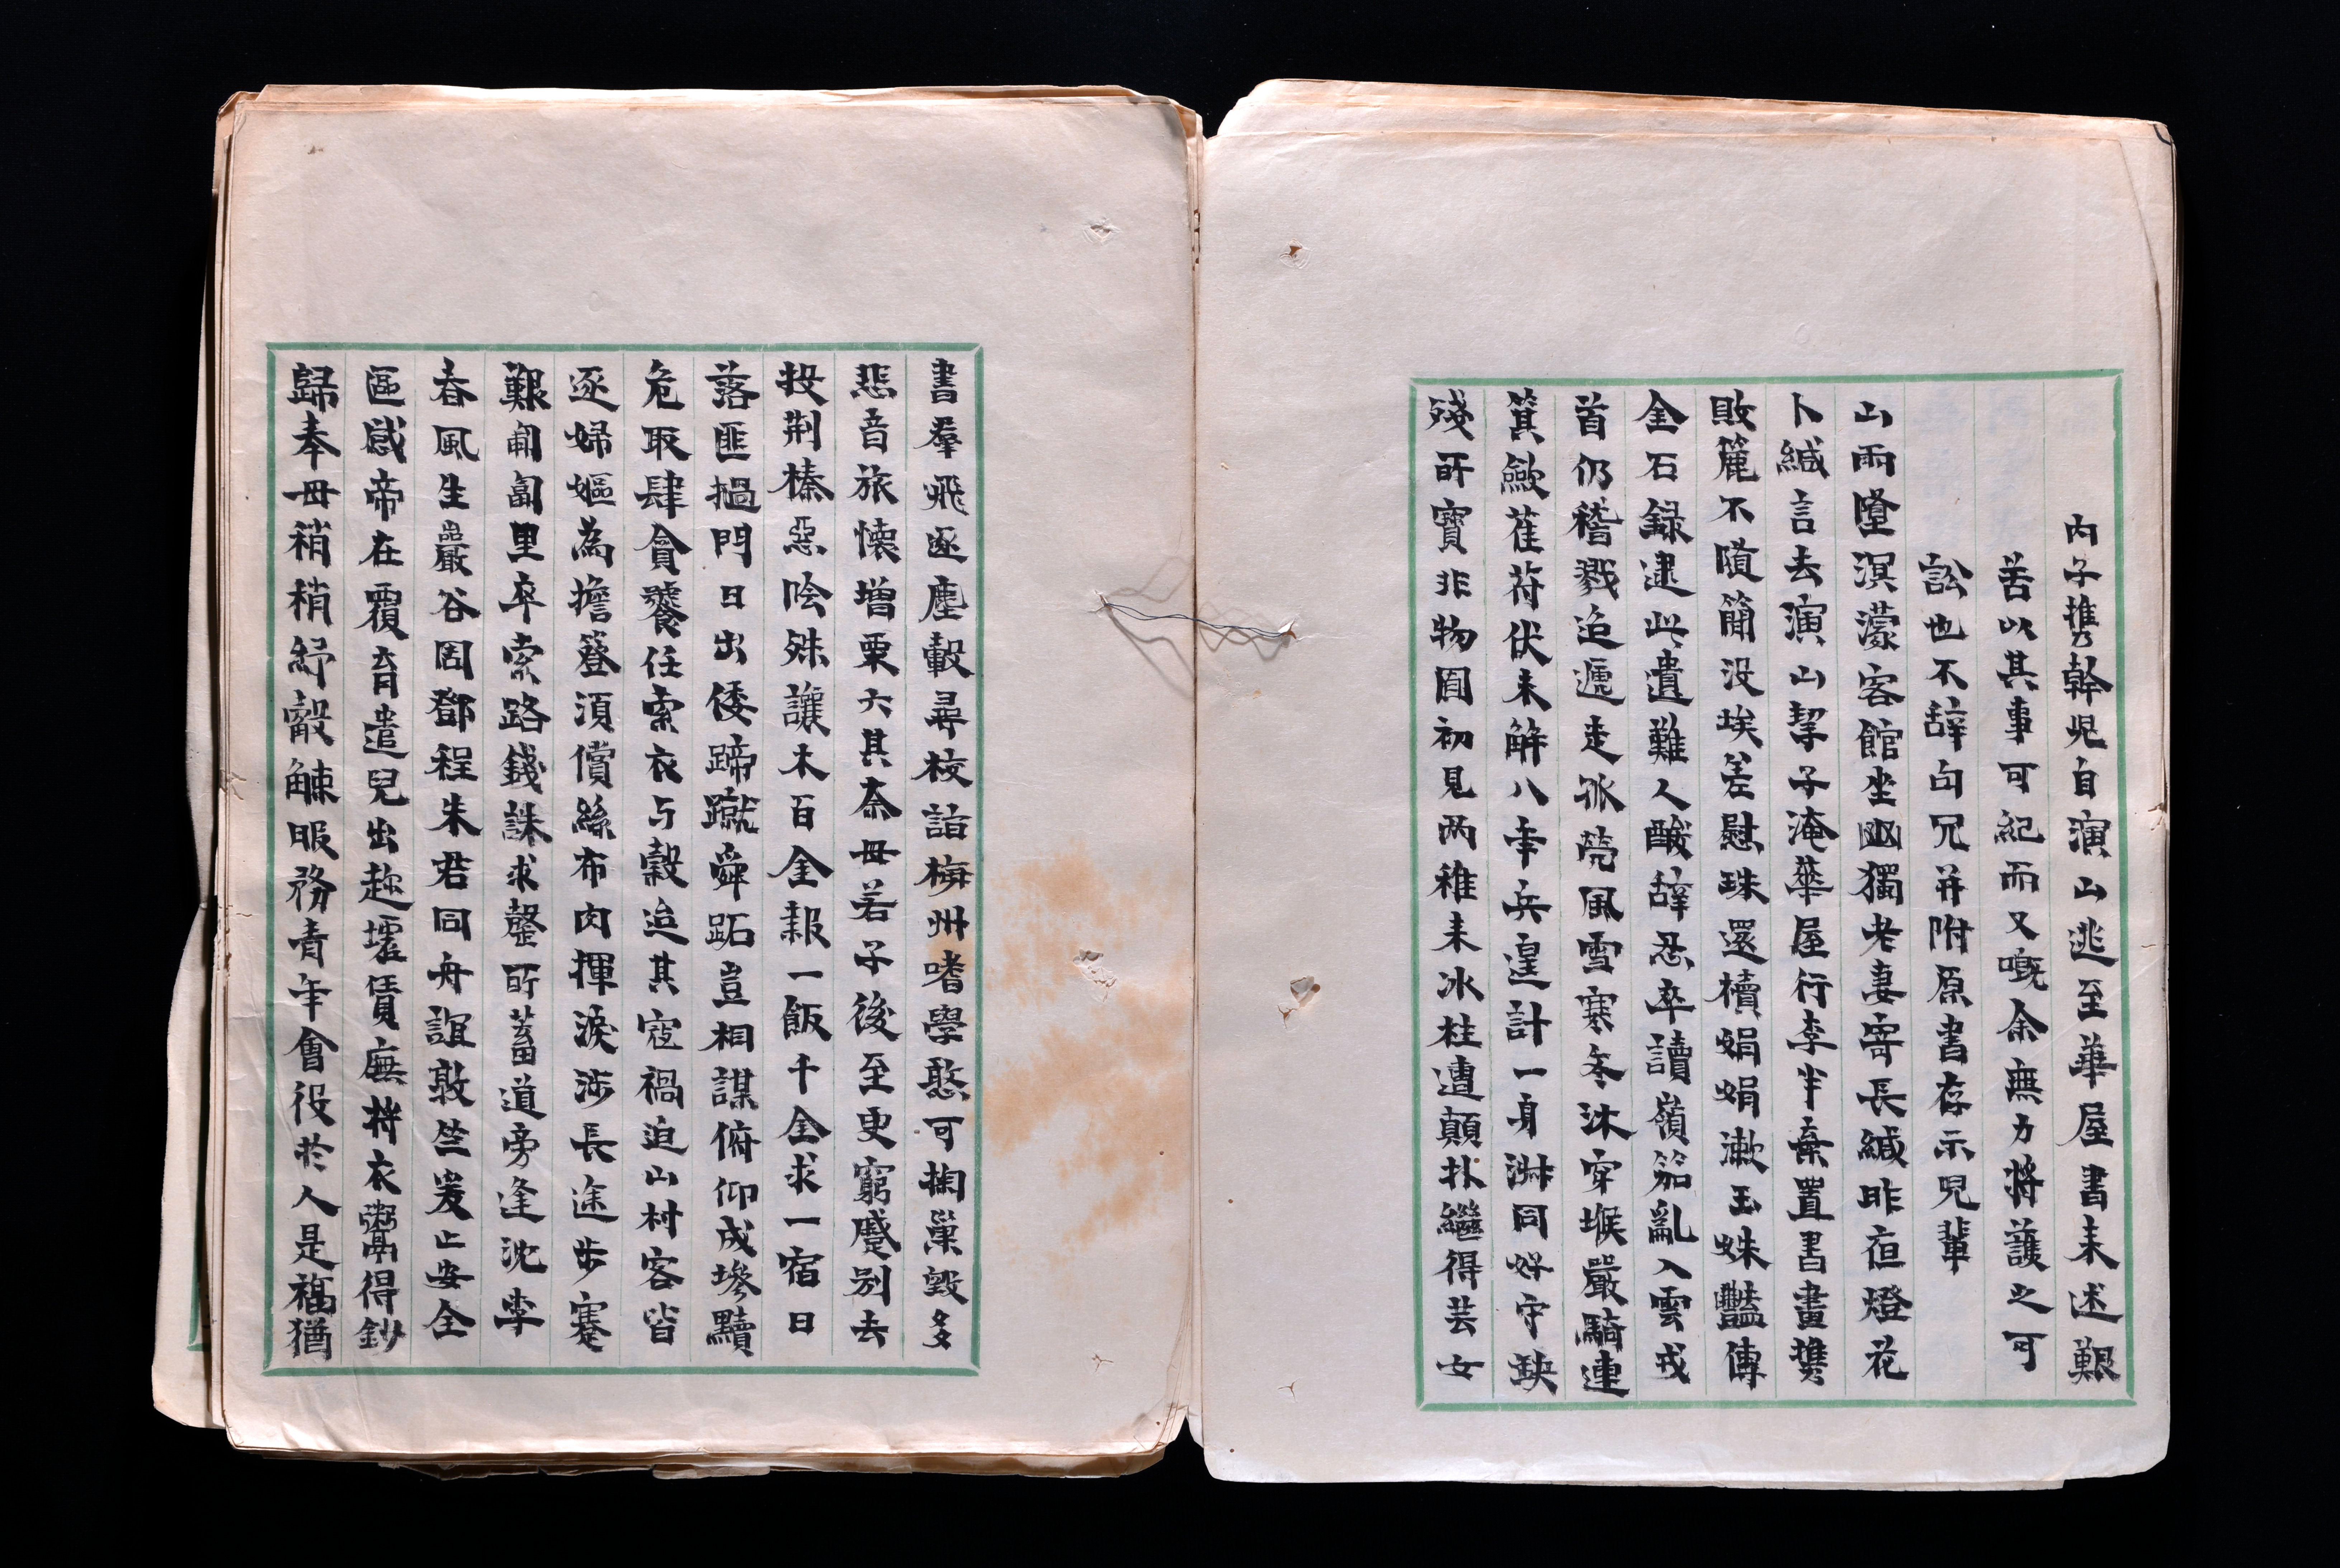 内子携幹児自演山逃至華屋書来述艱
苦以其事可紀而又嘅余無力將護之可
訟也不辞向兄并附原書存示児輩
山雨墮溟濛客館坐幽獨老妻寄長緘昨夜燈花
卜緘言去演山挈子淹華屋行李半棄置書畫携
敗簏不隨簡没埃差慰珠還櫝娟娟漱玉姝豔傳
金石録逮此遺難人酸辞忍卒讀嶺笳亂入雲戎
首仍稽戮迨遞走孤嫠風雪寒冬沐穿堠嚴騎連
箕歛萑苻伏未解八年兵遑計一身淋同好守缺
殘所寶非物囿初見两稚来冰柱遭顛扑繼得芸女
書羣飛逐塵轂尋校詣梅州嗜學憨可掬巢毀多
悲音旅懐增栗六其奈母若子後至更窮蹙别去
投荆榛惡唫殊讓木百金報一飯千金求一宿日
落匪撾門日出倭蹄蹴舜跖豈相謀俯仰成墋黷
危取肆貪饕任索衣与穀迨其寇禍迫山村客皆
逐婦嫗為擔簦湏償絲布肉揮淚涉長途步蹇
艱匍匐里卒索路錢誅求罄所蓄道旁逢沈李
春風生巖谷周鄧程朱君同舟誼敦竺爰止安全
區感帝在覆育遣兒出趂墟賃廡拌衣鬻得鈔
歸奉母稍稍紓觳觫暇務青年會役於人是福猶